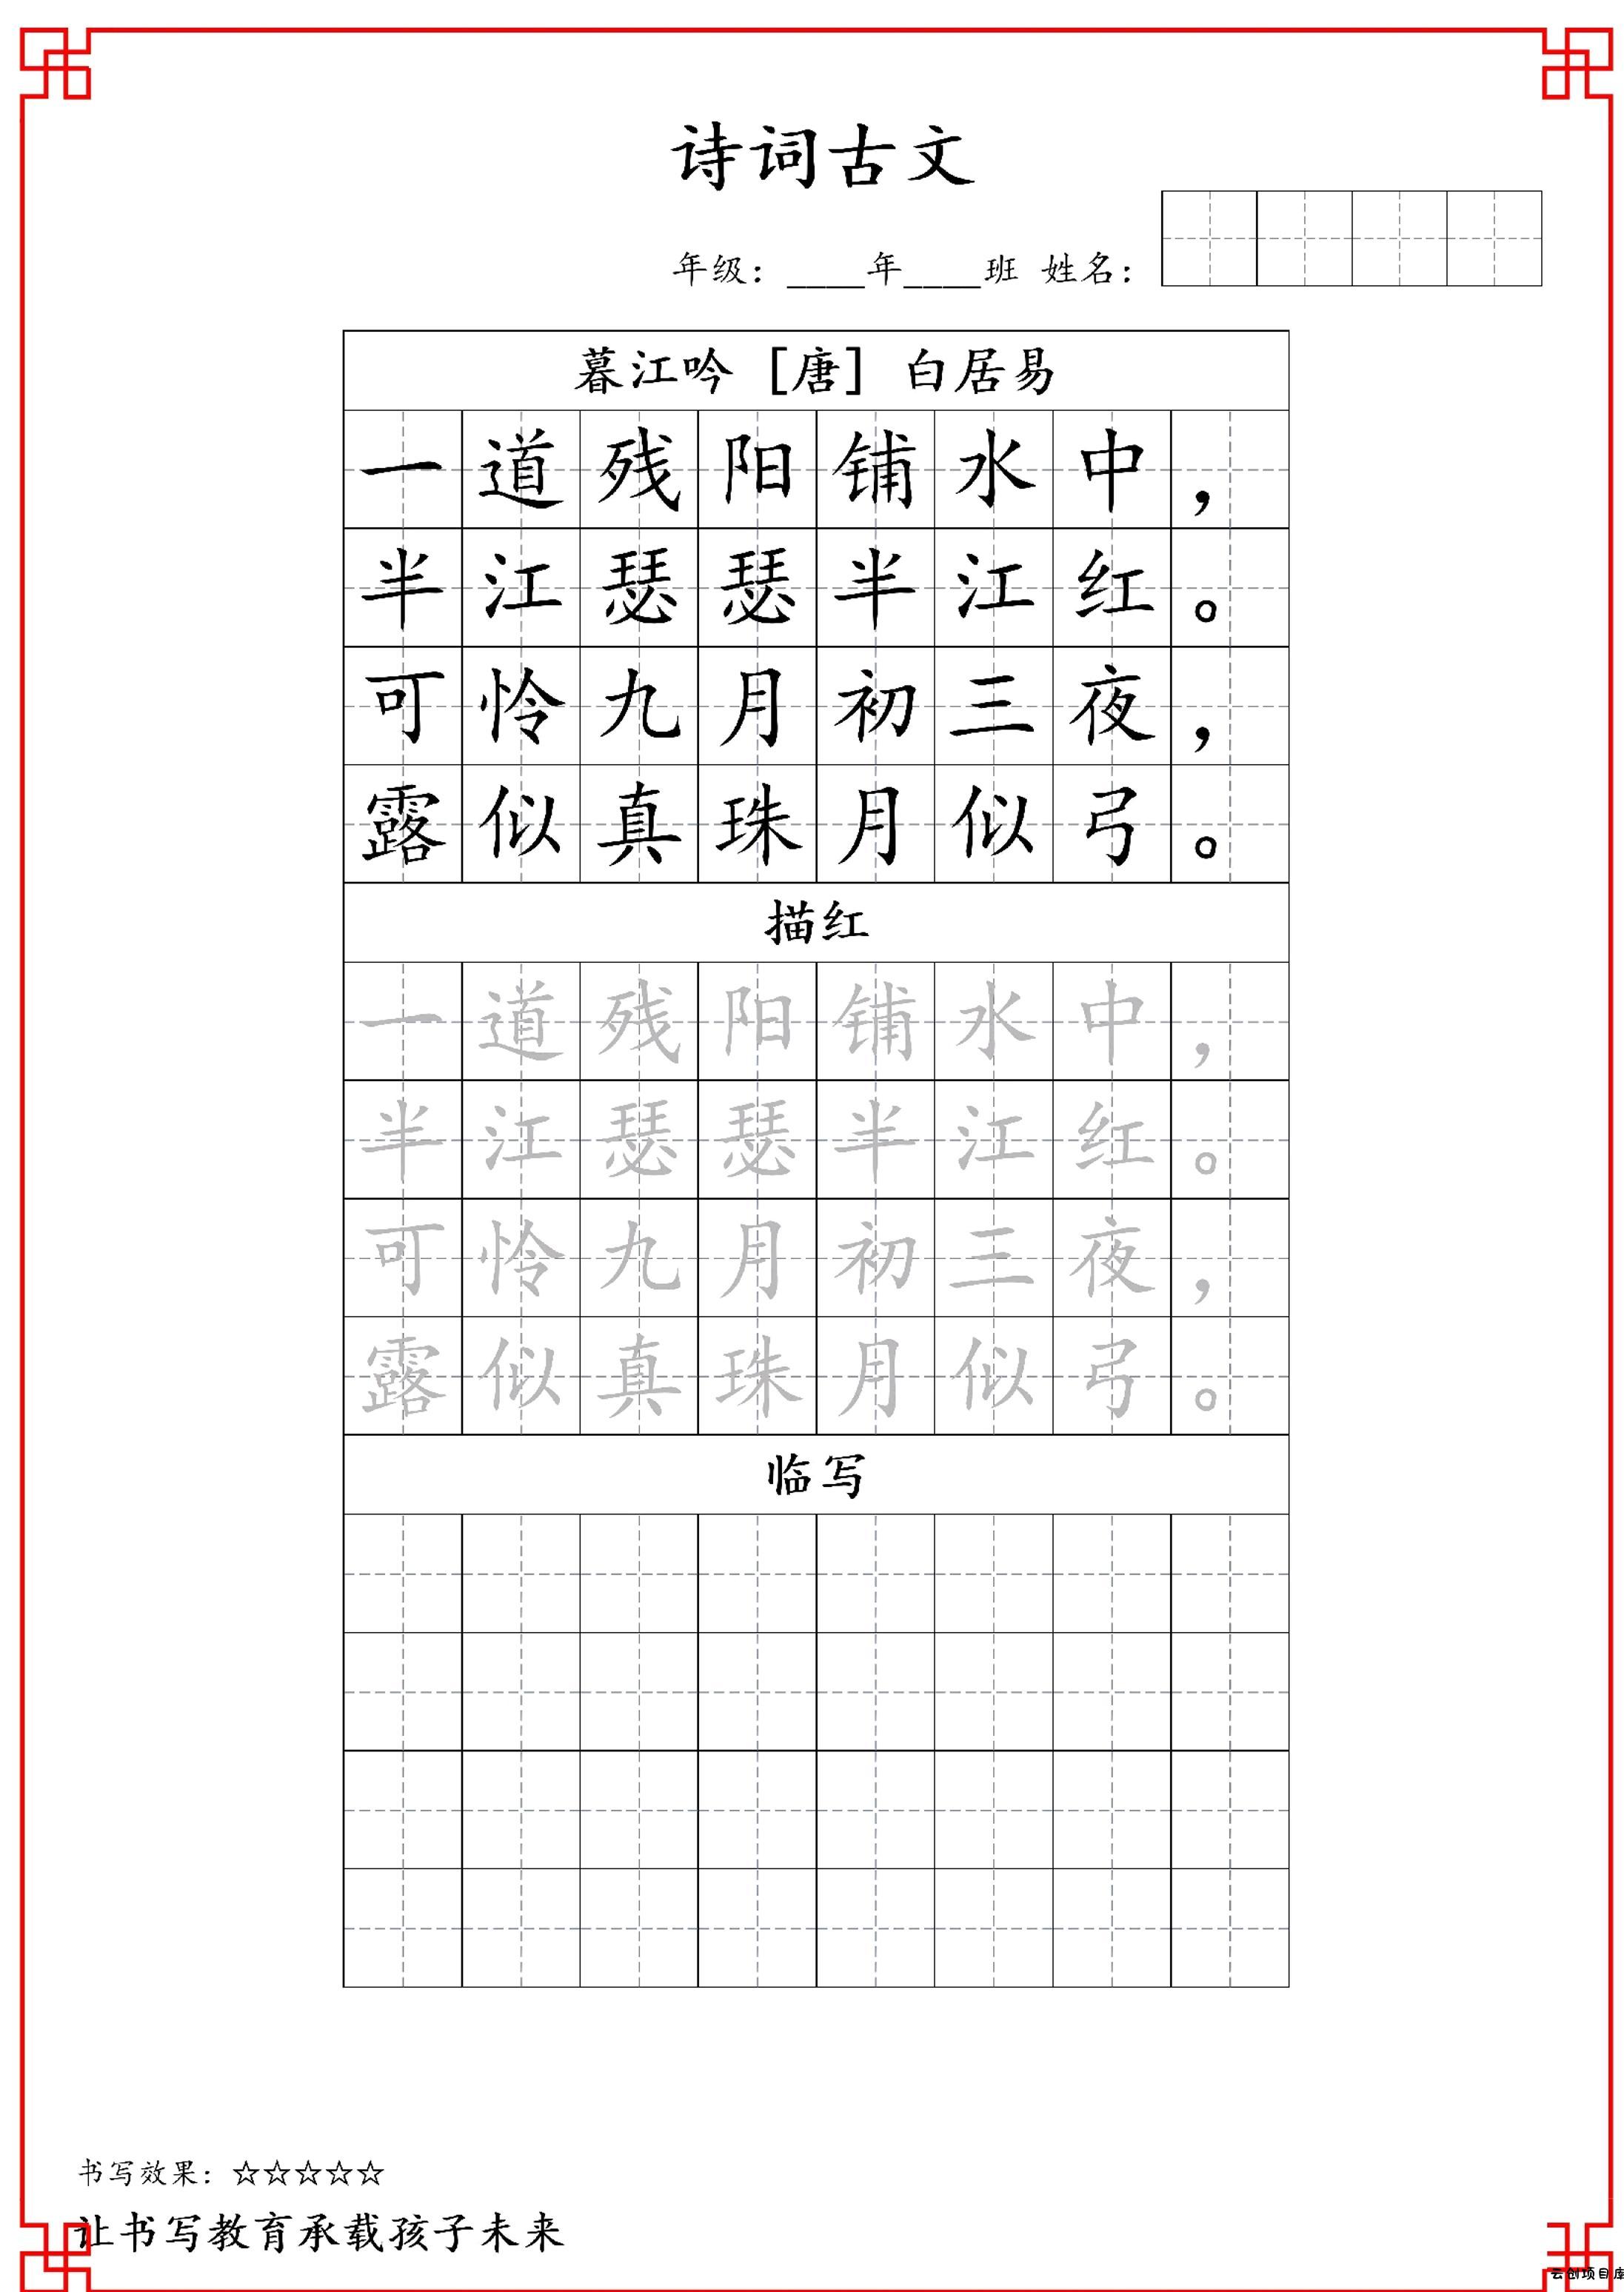 诗词古文
年级：____年____班 姓名：
暮江吟 [唐] 白居易
一道残阳铺水中，
半江瑟瑟半江红。
可怜九月初三夜，
露似真珠月似弓。
描红
一道残阳铺水中，
半江瑟瑟半江红。
可怜九月初三夜，
露似真珠月似弓。
临写
书写效果：☆☆☆☆☆
让书写教育承载孩子未来
云创项目库